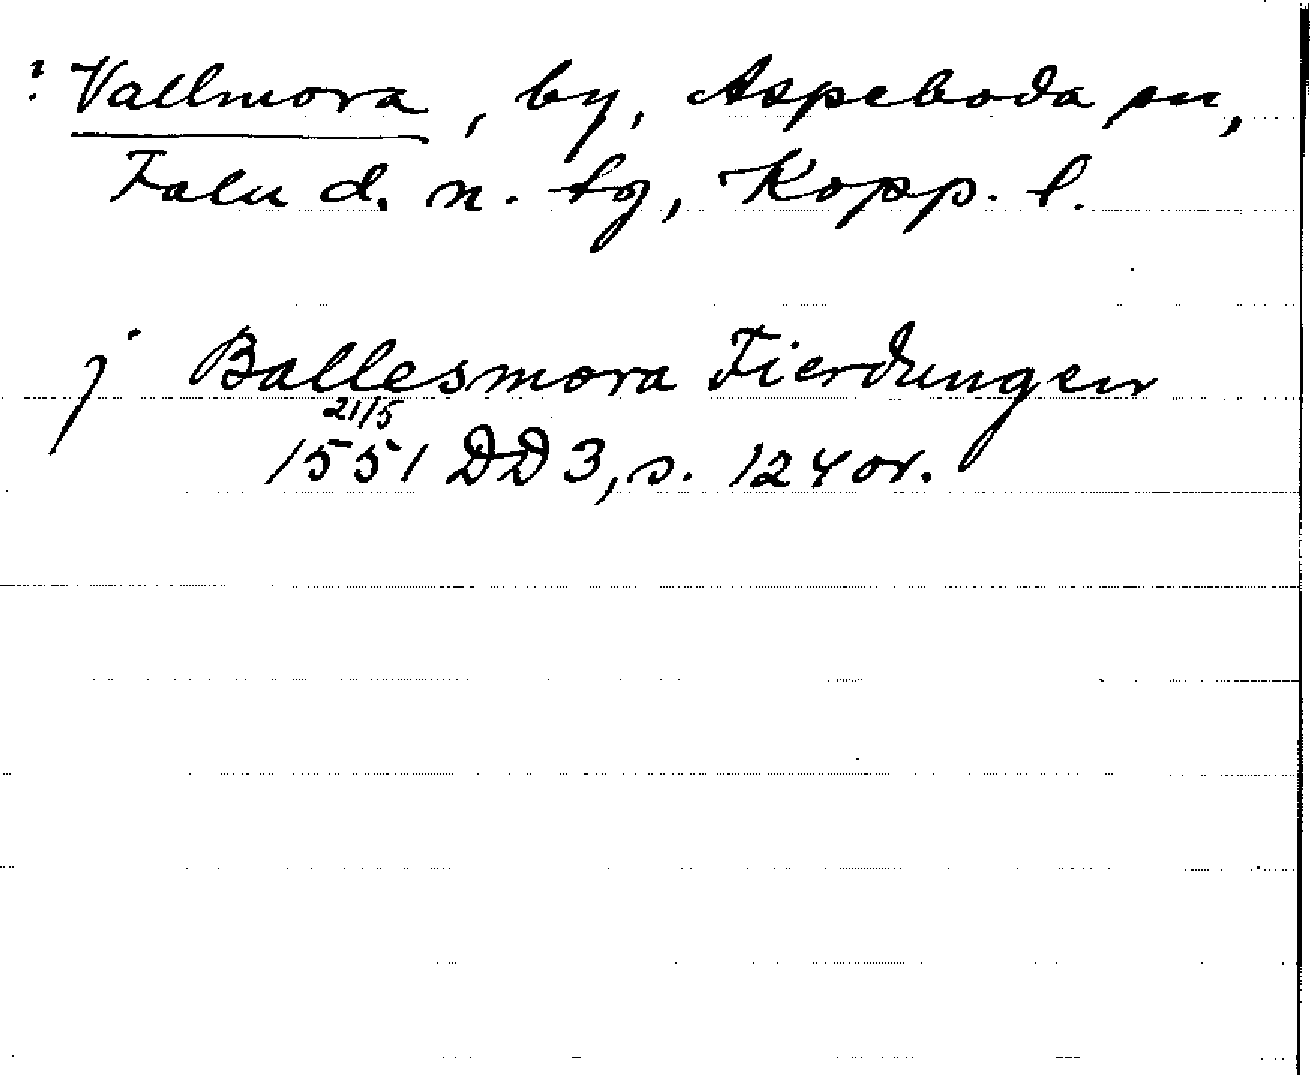 ? Vallmora, by, Aspeboda sn,
Falu d. n. tg, Kopp. l.
j Ballesmora Fierdungen
21/5
1551 DD 3, s. 124 or.